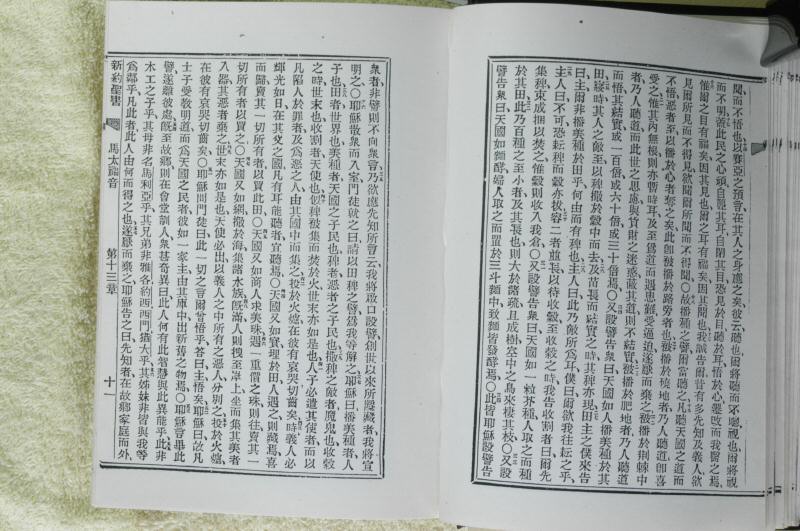 聞而不悟也以賽亞之預言在其人之身應之矣彼云聽也爾將聽而不曉視也爾將視
而不明蓋此民之心頑自塞其耳自閉其目恐見於目聽於耳悟於心悛改而我醫之焉
惟爾之目有福矣因其見也爾之耳有福矣因其聞也我誠告爾昔有多先知及義人欲
見爾所見而不得見欲聞爾所聞而不得聞〇故播種之譬爾當聽之凡聽天國之道而
不悟惡者至以播於心者奪之矣此卽被播於路旁者也被播於磽地者乃人聽道卽喜
受之惟其內無根則亦暫時耳及至爲道而遇患難受逼迫遂厭而棄之被播於荊棘中
者乃人聽道而此世之思慮與貨財之迷惑蔽其道則不結實被播於肥地者乃人聽道
而悟其結實或一百倍或六十倍或三十倍焉〇又設譬告衆曰天國如人播美種於其
田寢時其人之敵至以稗撒於穀中而去及苗長而結實之時其稗亦現田主之僕來告
曰主爾非播美種於田乎何由而有稗也主人曰此乃敵所爲耳僕曰爾欲我往耘之乎
主人曰不可恐耘稗而穀亦拔容二者竝長以待收穀至收穀之時我告收割者曰爾先
集稗束成捆以焚之惟穀則收入我倉〇又設譬告衆曰天國如一粒芥種人取之而種
於其田此乃百種之至小者及其長也則大於諸蔬且成樹空中之鳥來棲其枝〇又設
譬告衆曰天國如麵酵婦人取之而置於三斗麵中致麵皆發酵焉〇此皆耶穌設譬告
衆者非譬則不向衆言乃欲應先知所言云我將啟口設譬創世以來所隱藏者我將宣
明之〇耶穌散衆而入室門徒就之曰請以田稗之譬爲我等解之耶穌曰播美種者人
子也田者世界也美種者天國之子民也稗者惡者之子民也撒稗之敵者魔鬼也收穀
之時世末也收割者天使也似稗被集而焚於火世末亦如是也人子必遣其使者而以
凡陷人於罪者及爲惡之人由其國中而集之投於火爐在彼有哀哭切齒矣時義人必
輝光如日在其父之國凡有耳能聽者宜聽焉〇天國又如寶埋於田人遇之則藏焉喜
而歸賣其一切所有者以買此田〇天國又如商人求美珠遇一重價之珠則往賣其一
切所有者以買之〇天國又如網撒於海集諸水族旣滿人則拽至岸上坐而集其美者
入器其惡者棄之世末亦如是也天使必出以義人之中所有之惡人分別之投於火爐
在彼有哀哭切齒矣〇耶穌問門徒曰此一切之言爾曾悟乎答曰主悟矣耶穌曰故凡
士子受敎明道而爲天國之民者彼如一家主由其庫中出新舊之物焉〇耶穌言畢此
譬遂離彼處旣至故鄉則在會堂訓人衆甚奇異曰此人何有此智慧與此異能乎此非
木工之子乎其母非名馬利亞乎其兄弟非雅各約西西門猶大乎其姊妹非皆與我等
爲鄰乎凡此者此人由何而得之也遂厭而棄之耶穌告之曰先知者在故鄉家庭而外
新約聖書 馬太福音 第十三章 十一